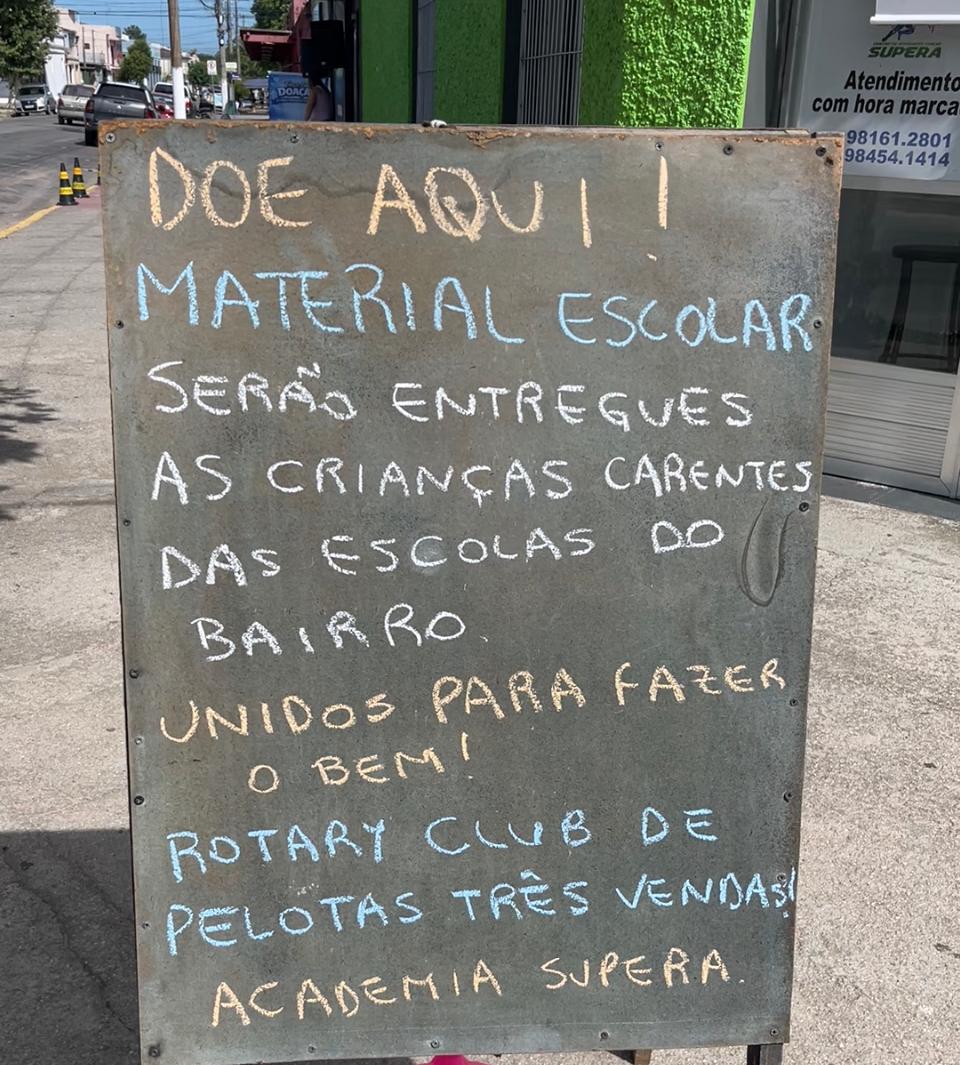 SUPERA
Atendimento
com hora marca
98161.2801
98454.1414
DOAÇÃ
DOE AQUI!
MATERIAL ESCOLAR
SERÃO ENTREGUES
AS CRIANÇAS CARENTES
DAS ESCOLAS DO
BAIRRO.
UNIDOS PARA FAZER
O BEM!
ROTARY CLUB DE
PELOTAS TRÊS VENDAS!
ACADEMIA SUPERA.